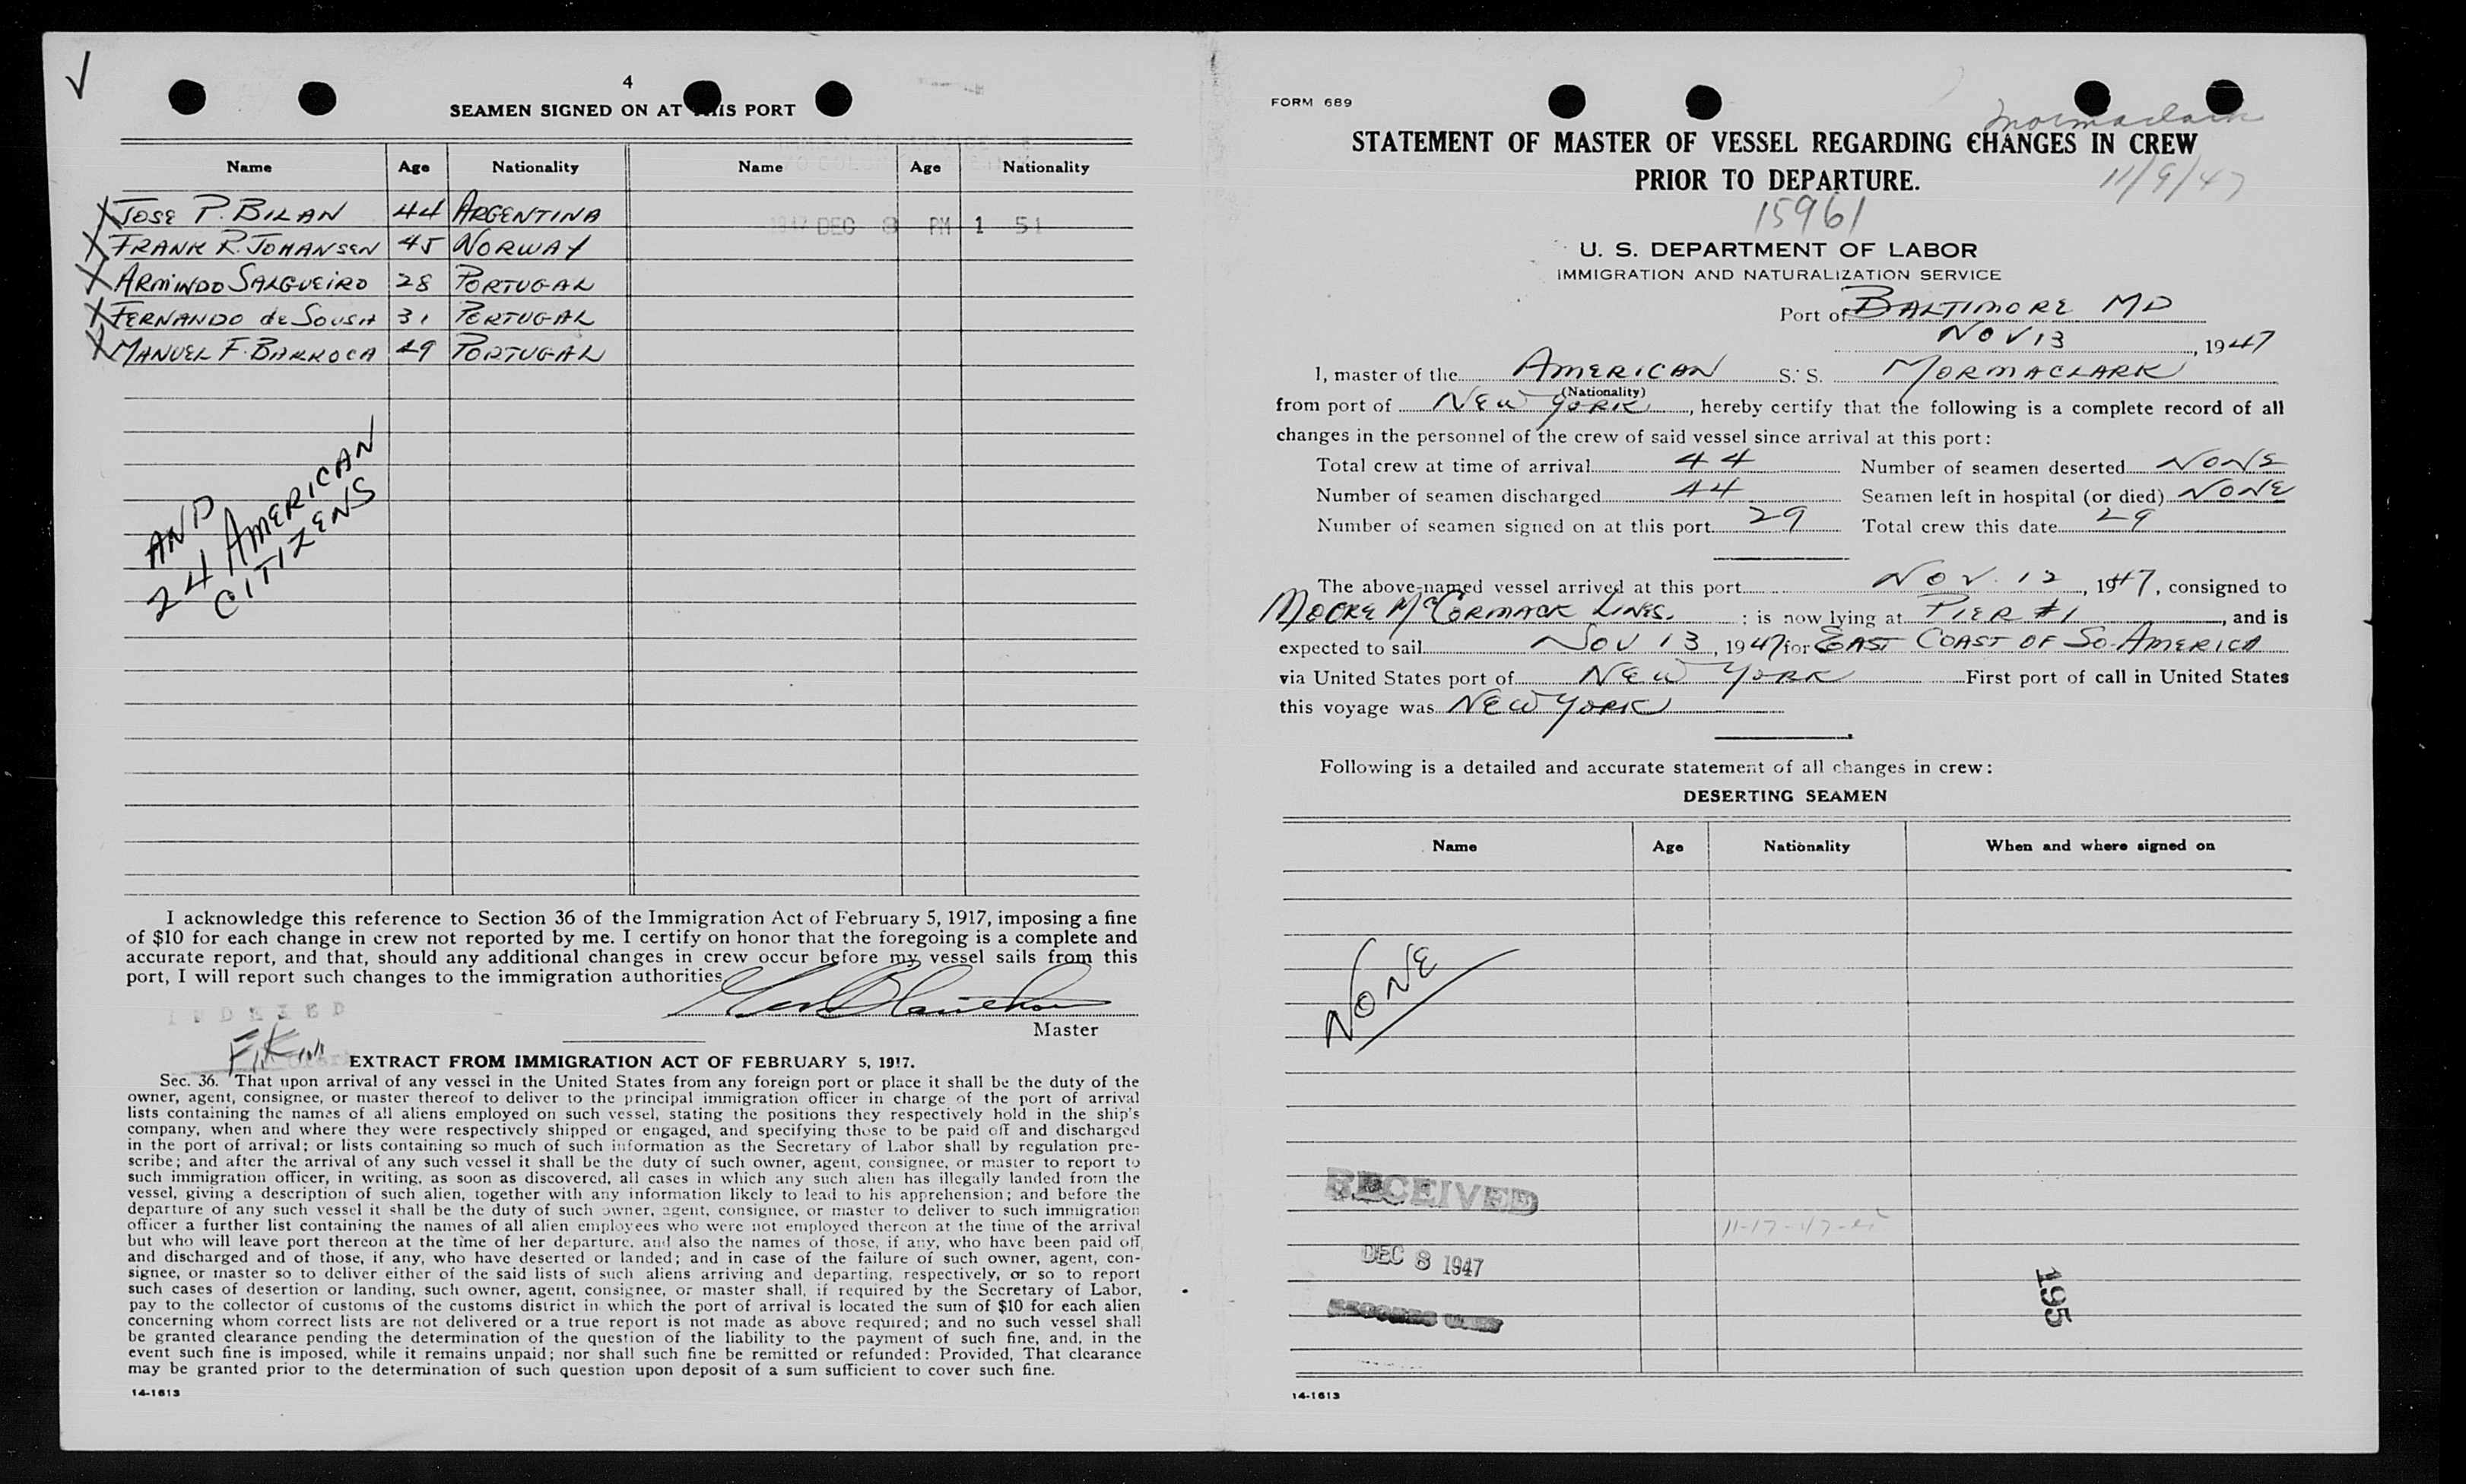 4
SEAMEN SIGNED ON AT THIS PORT
Name Age Nationality Name Age Nationality
1947 DEC 8 PM 1 51
X JOSE P. BILAN 44 ARGENTINA
X FRANK R. JOHANSEN 45 NORWAY
X ARMINDO SALGUEIRO 28 PORTUGAL
X FERNANDO de SOUSA 31 PORTUGAL
X MANUEL F. BARROCA 49 PORTUGAL
AND
24 AMERICAN
CITIZENS
I acknowledge this reference to Section 36 of the Immigration Act of February 5, 1917, imposing a fine
of $10 for each change in crew not reported by me. I certify on honor that the foregoing is a complete and
accurate report, and that, should any additional changes in crew occur before my vessel sails from this
port, I will report such changes to the immigration authorities.
Master
INDEXED
EXTRACT FROM IMMIGRATION ACT OF FEBRUARY 5, 1917.
Sec. 36. That upon arrival of any vessel in the United States from any foreign port or place it shall be the duty of the
owner, agent, consignee, or master thereof to deliver to the principal immigration officer in charge of the port of arrival
lists containing the names of all aliens employed on such vessel, stating the positions they respectively hold in the ship's
company, when and where they were respectively shipped or engaged, and specifying those to be paid off and discharged
in the port of arrival; or lists containing so much of such information as the Secretary of Labor shall by regulation pre-
scribe; and after the arrival of any such vessel it shall be the duty of such owner, agent, consignee, or master to report to
such immigration officer, in writing, as soon as discovered, all cases in which any such alien has illegally landed from the
vessel, giving a description of such alien, together with any information likely to lead to his apprehension; and before the
departure of any such vessel it shall be the duty of such owner, agent, consignee, or master to deliver to such immigration
officer a further list containing the names of all alien employees who were not employed thereon at the time of the arrival
but who will leave port thereon at the time of her departure, and also the names of those, if any, who have been paid off
and discharged and of those, if any, who have deserted or landed; and in case of the failure of such owner, agent, con-
signee, or master so to deliver either of the said lists of such aliens arriving and departing, respectively, or so to report
such cases of desertion or landing, such owner, agent, consignee, or master shall, if required by the Secretary of Labor,
pay to the collector of customs of the customs district in which the port of arrival is located the sum of $10 for each alien
concerning whom correct lists are not delivered or a true report is not made as above required; and no such vessel shall
be granted clearance pending the determination of the question of the liability to the payment of such fine, and, in the
event such fine is imposed, while it remains unpaid; nor shall such fine be remitted or refunded: Provided, That clearance
may be granted prior to the determination of such question upon deposit of a sum sufficient to cover such fine.
14-1613
FORM 689
Mormaclark
STATEMENT OF MASTER OF VESSEL REGARDING CHANGES IN CREW
PRIOR TO DEPARTURE.
11/9/47
15961
U. S. DEPARTMENT OF LABOR
IMMIGRATION AND NATURALIZATION SERVICE
Port of BALTIMORE MD
NOV 13, 1947
I, master of the AMERICAN S. S. MORMACLARK
(Nationality)
from port of NEW YORK, hereby certify that the following is a complete record of all
changes in the personnel of the crew of said vessel since arrival at this port:
Total crew at time of arrival 44 Number of seamen deserted NONE
Number of seamen discharged 44 Seamen left in hospital (or died) NONE
Number of seamen signed on at this port 29 Total crew this date 29
The above-named vessel arrived at this port NOV. 12, 1947, consigned to
MOORE McCORMACK LINES. ; is now lying at PIER #1, and is
expected to sail NOV 13, 1947 for EAST COAST OF SO. AMERICA
via United States port of NEW YORK First port of call in United States
this voyage was NEW YORK
Following is a detailed and accurate statement of all changes in crew:
DESERTING SEAMEN
Name Age Nationality When and where signed on
NONE
RECEIVED
DEC 8 1947
195
14-1613